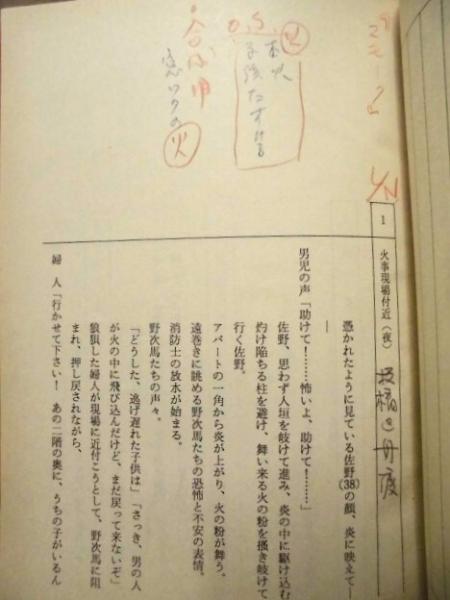 1
火事現場付近（夜）
憑かれたように見ている佐野(38)の顔、炎に映えて―
―
男児の声「助けて！……怖いよ、助けて！………」
佐野、思わず人垣を岐けて進み、炎の中に駆け込む
灼け陥ちる柱を避け、舞い来る火の粉を掻き岐けて
行く佐野。
アパートの一角から炎が上がり、火の粉が舞う。
遠巻きに眺める野次馬たちの恐怖と不安の表情。
消防士の放水が始まる。
野次馬たちの声々。
「どうした、逃げ遅れた子供は」「さっき、男の人
が火の中に飛び込んだけど、まだ戻って来ないぞ」
狼狽した婦人が現場に近付こうとして、野次馬に阻
まれ、押し戻されながら、
婦　人「行かせて下さい！　あの二階の奥に、うちの子がいるん
L/N
O.S.
火
子供たすける
火